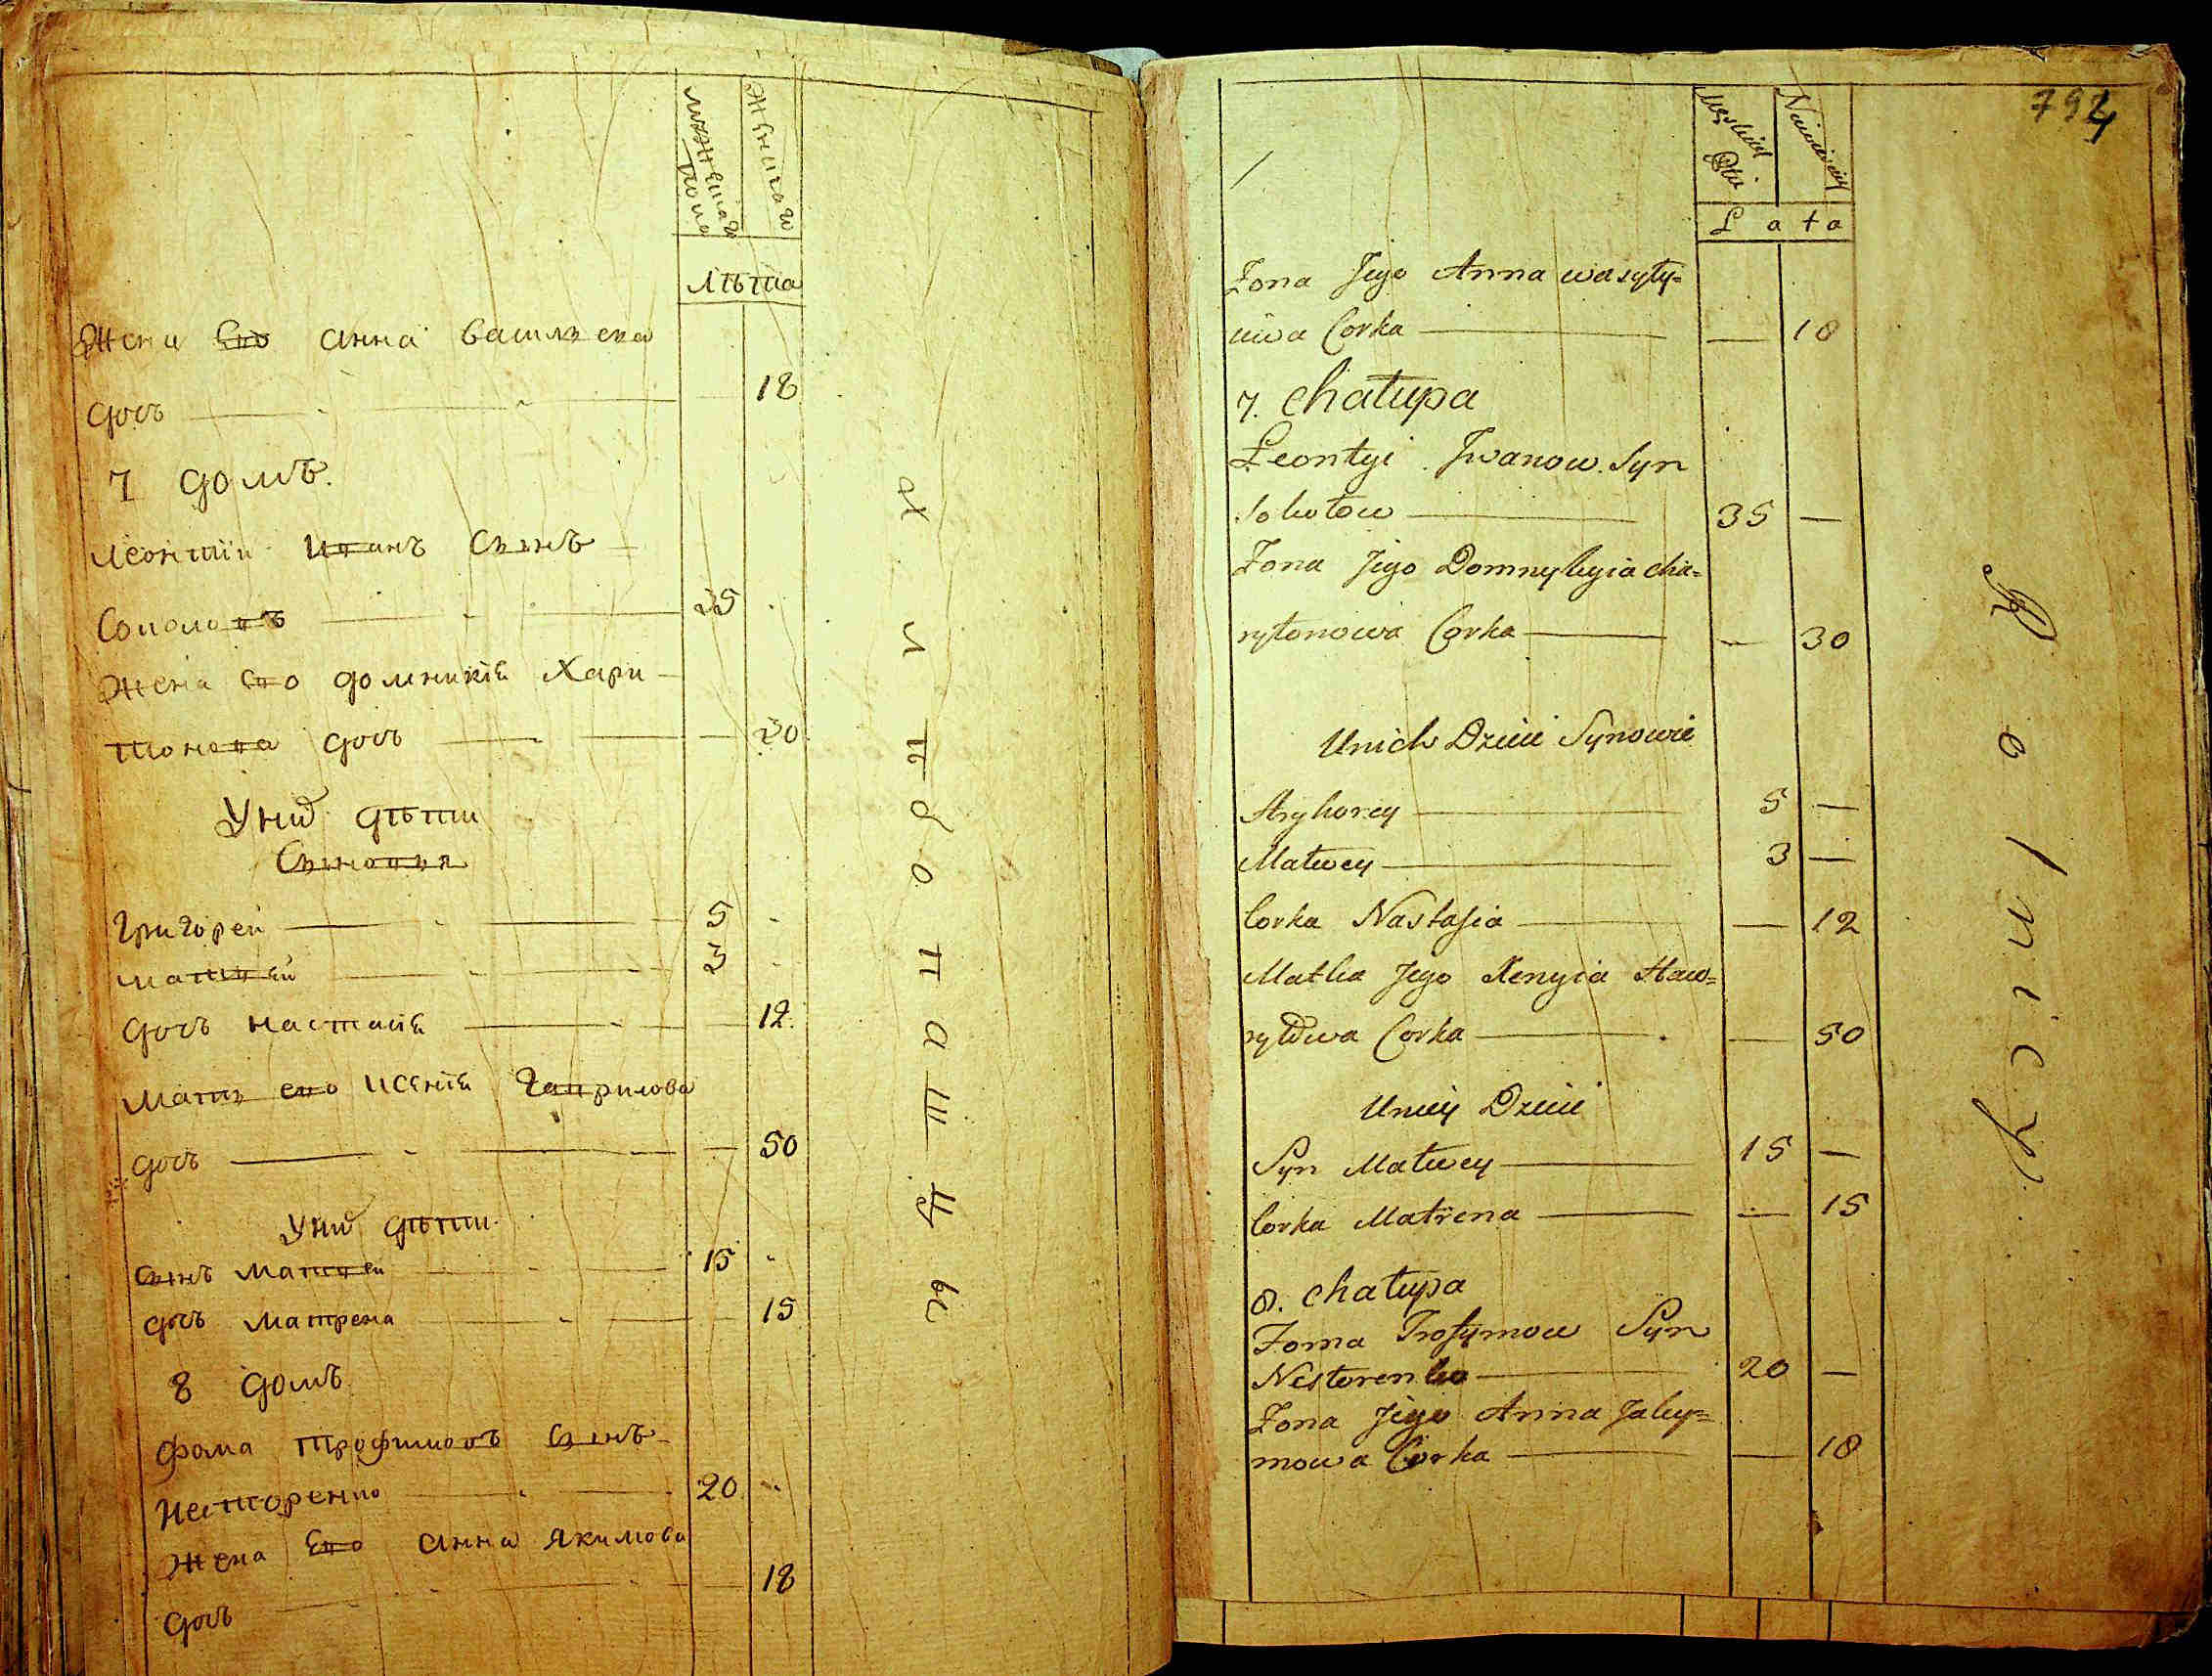 мужеска
пола
женска
лѣта
жена его анна василева
дочь 18
7 домъ.
леонтій иванъ сынъ
Соколовъ 35
жена его домникія Хари-
тонова дочь 30
У них дѣти
Сыновья
Григорей 5
матвей 3
дочь настасія 12
мать его ксенія Гаврилова
дочь 50
У них дѣти
сынъ матвей 15
дочь матрена 15
8 домъ
фома трофимовъ сынъ
Несторенко 20
жена его анна якимова
дочь 18
хлѣбопашцы
794
Męskiey
Płci
Niewieściey
Lata
Żona Jego Anna wasyły=
iowa Corka — 18
7. Chałupa
Leontyi Iwanow Syn
Sokołow 35 —
Żona Jego Domnykyia cha=
rytonowa Corka — 30
Unich Dzieci Synowie
Hryhorey 5 —
Matwey 3 —
Corka Nastasia — 12
Matka Jego Xenyia Haw=
ryłowa Corka — 50
Uniey Dzieci
Syn Matwey 15 —
Corka Matrena — 15
8. Chałupa
Foma Trofymow Syn
Nestorenko 20 —
Żona Jego Anna Jaky=
mowa Corka — 18
Rolnicy